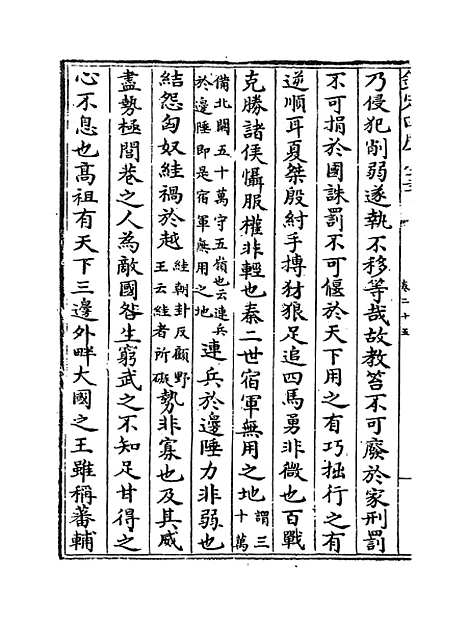 乃侵犯削弱遂執不移等哉故教笞不可廢於家刑罰
不可捐於國誅罰不可偃於天下用之有巧拙行之有
逆順耳夏桀殷紂手搏犲狼足追四馬勇非微也百戰
克勝諸侯懾服權非輕也秦二世宿軍無用之地謂三十萬
備北闕五十萬守五嶺也云連兵於邊陲即是宿軍無用之地連兵於邊陲力非弱也
結怨匈奴絓禍於越絓朝卦反顧野王云絓者所礙勢非寡也及其威
盡勢極閭巷之人為敵國咎生窮武之不知足甘得之
心不息也髙祖有天下三邊外畔大國之王雖稱蕃輔
卷二十五